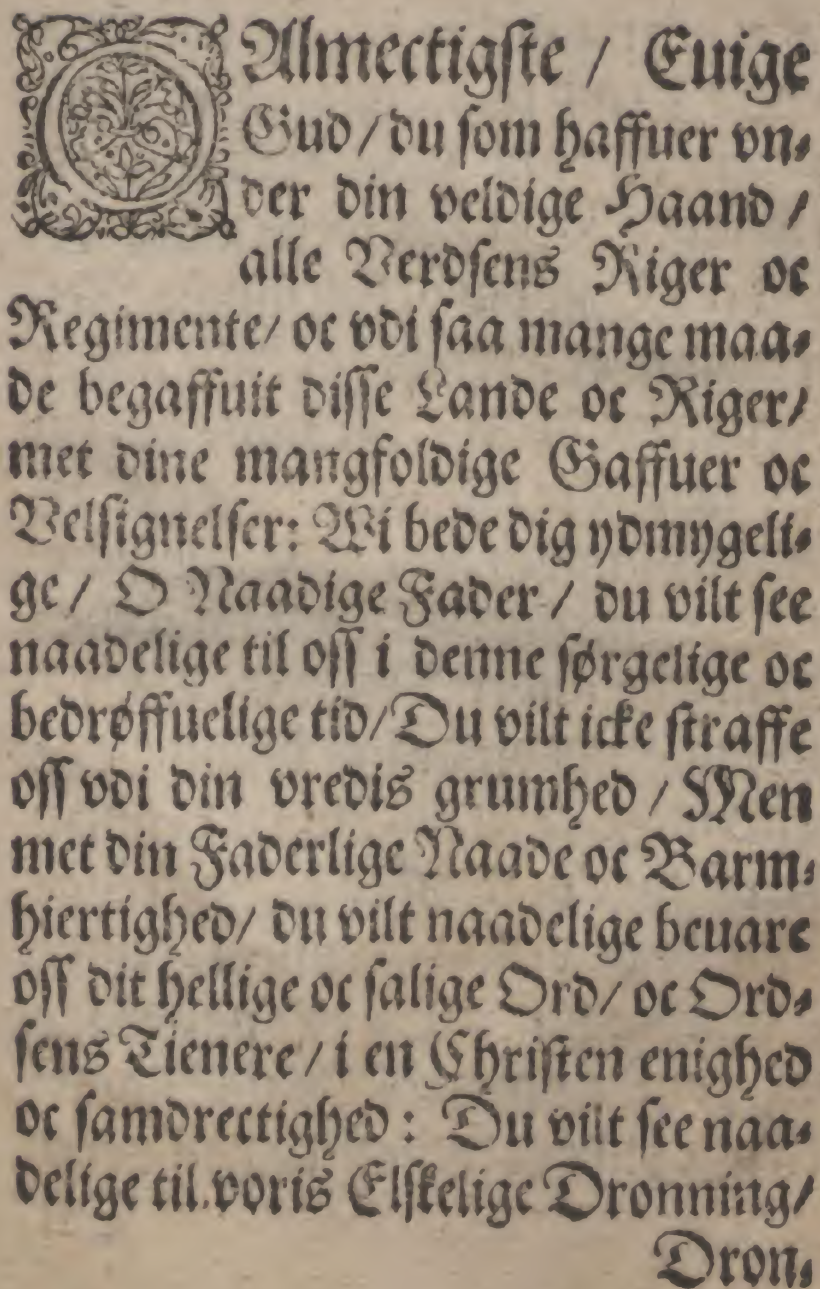 O Almectigste / Euige
Gud / du som haffuer vn⸗
der din veldige Haand /
alle Verdsens Riger oc
Regimente / oc vdi saa mange maa⸗
de begaffuit disse Lande oc Riger /
met dine mangfoldige Gaffuer oc
Velsignelser: Wi bede dig ydmygeli⸗
ge / O Naadige Fader / du vilt see
naadelige til oss i denne sørgelige oc
bedrøffuelige tid / Du vilt icke straffe
oss vdi din vredis grumhed / Men
met din Faderlige Naade oc Barm⸗
hiertighed / du vilt naadelige beuare
oss dit hellige oc salige Ord / oc Ord⸗
sens Tienere / i en Christen enighed
oc samdrectighed : Du vilt see naa⸗
delige til voris Elskelige Dronning /
Dron⸗